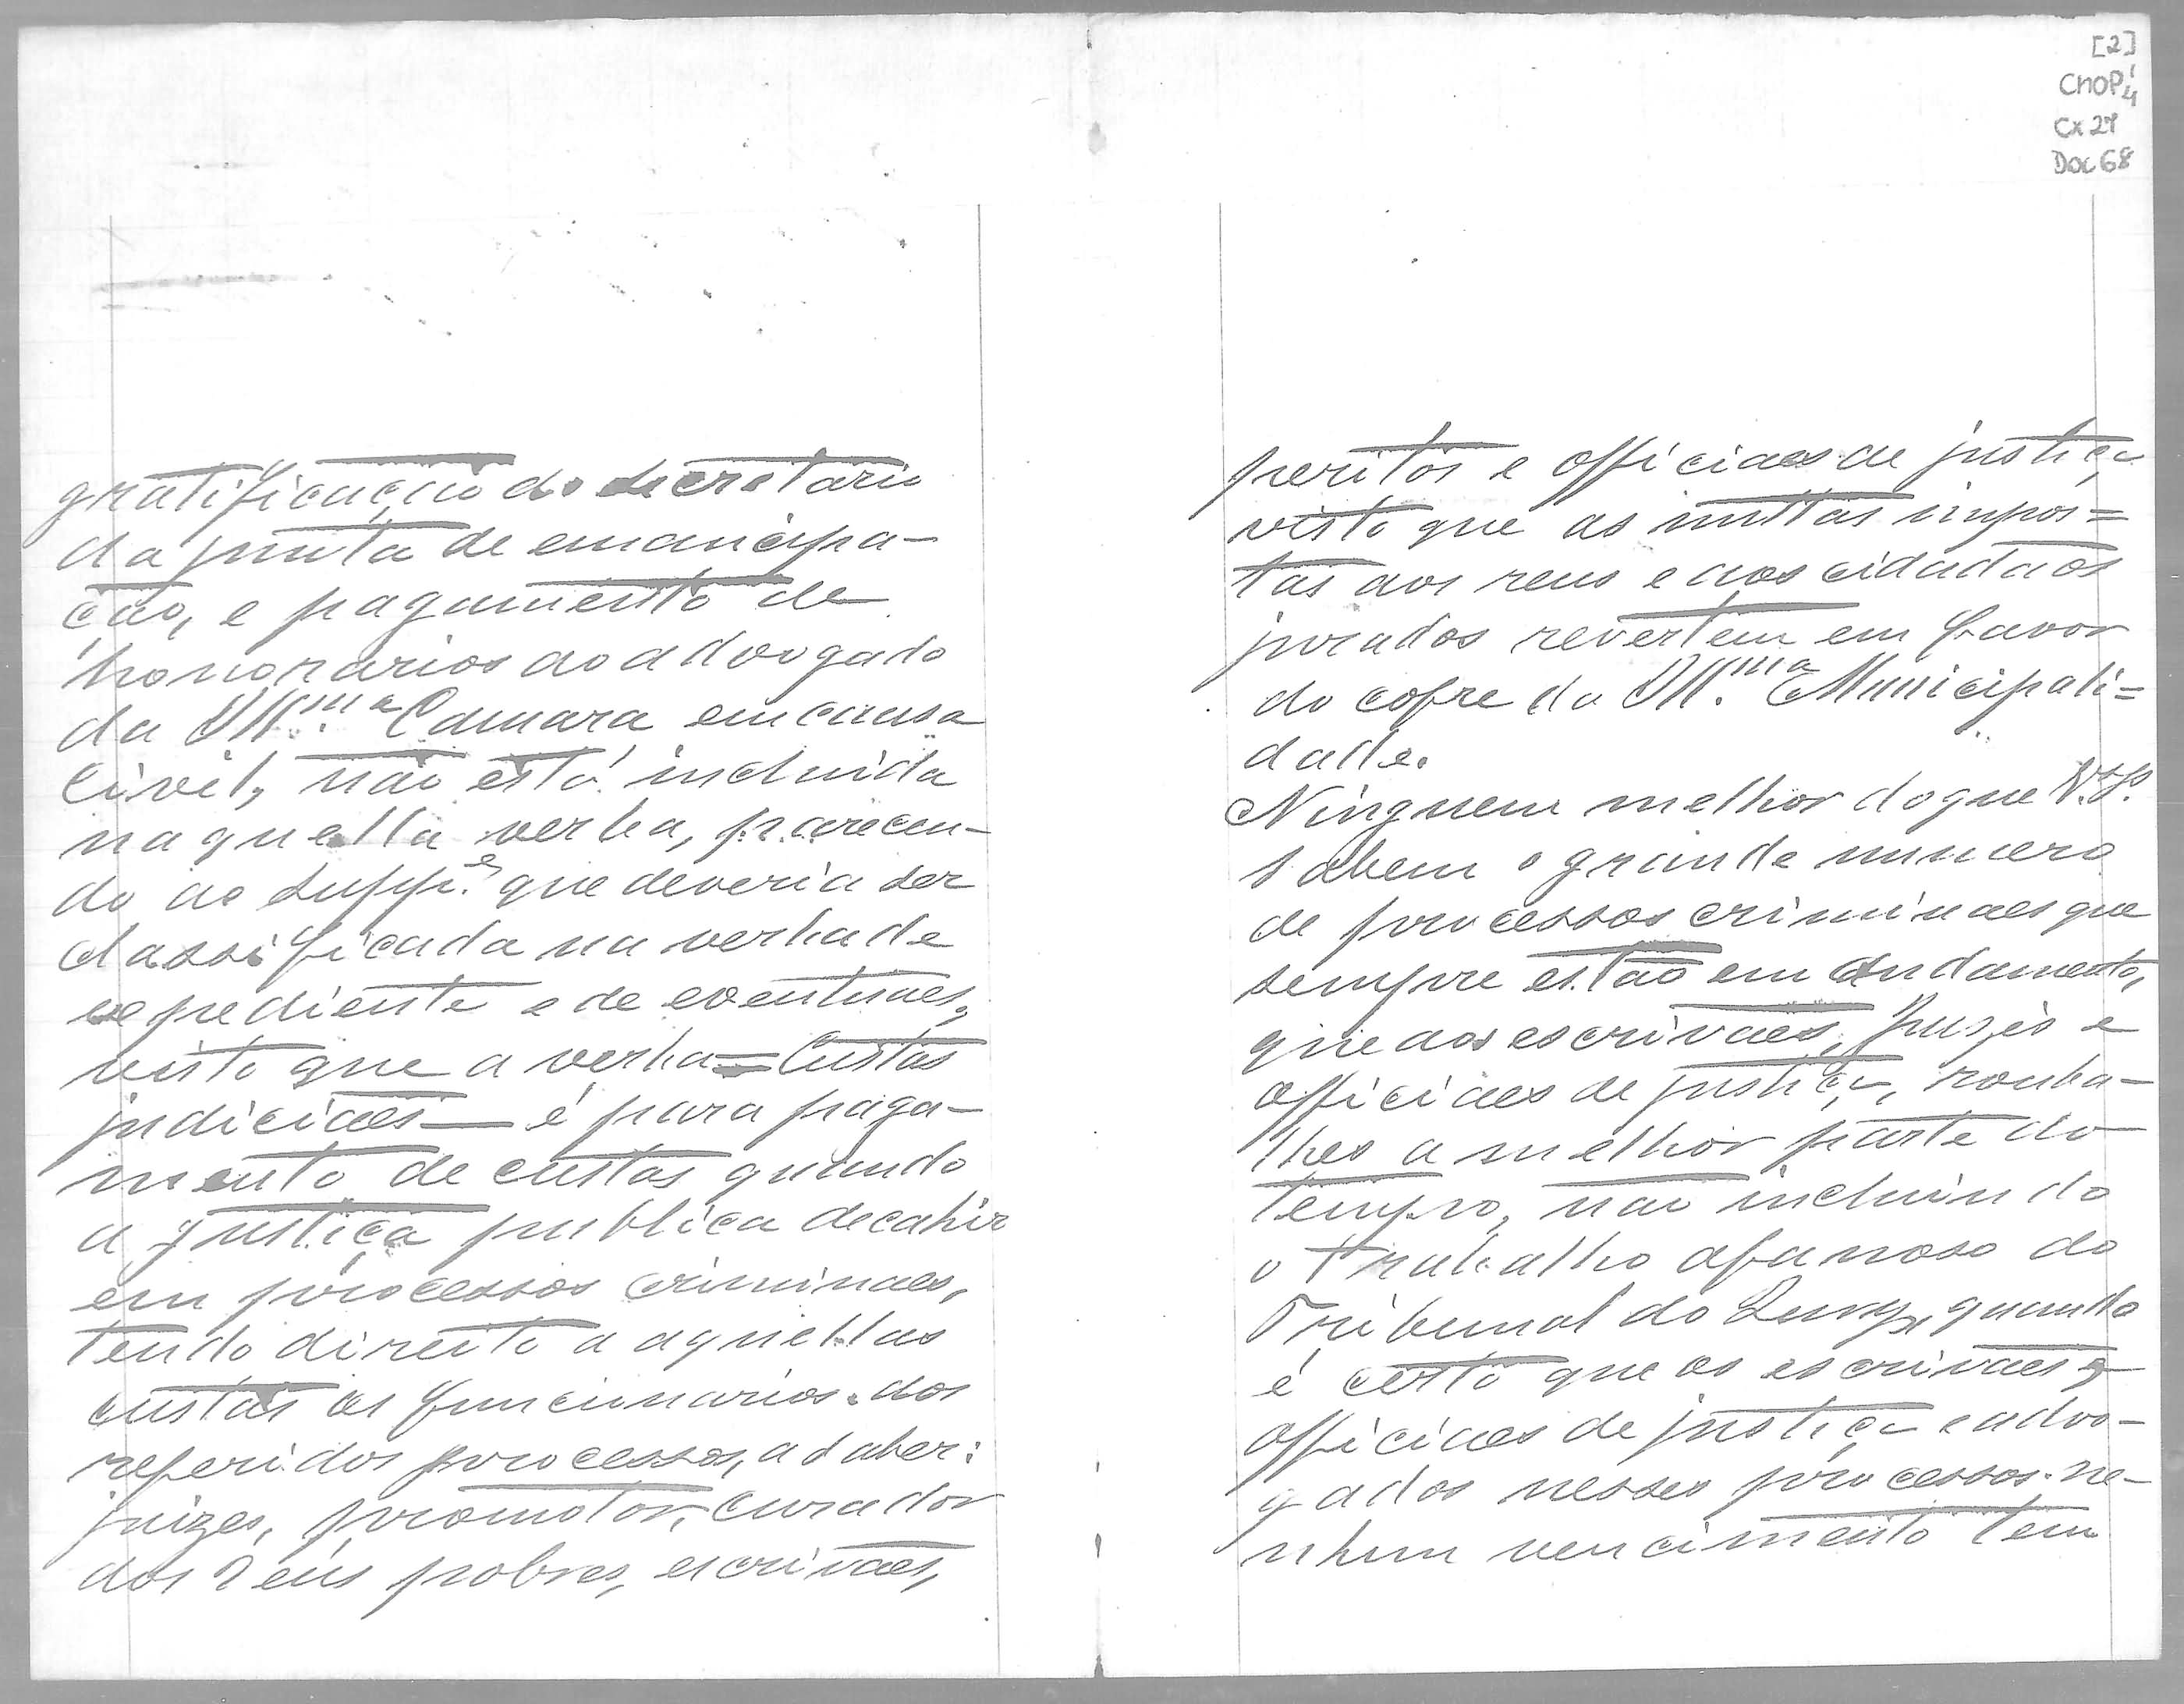 [2]
CMOP 1/4
Cx 27
Doc 68
gratificação do secretario
da junta de emancipa-
ção, e pagamento de
honorarios ao advogado
da Ill.ma Camara em causa
civel, não está incluida
naquella verba, parecen-
do ao Supp.e que deveria ser
classificada na verba de
expediente e de eventuaes,
visto que a verba = Custas
judiciaes — é para paga-
mento de custas quando
a Justiça publica decahir
em processos criminaes,
tendo direito a aquellas
custas os funcionarios dos
referidos processos, a saber:
juizes, promotor, curador
dos réus pobres, escrivães,
peritos e officiaes de justiça,
visto que as multas impos=
tas aos reus e aos cidadãos
jurados revertem em favor
do cofre da Ill.ma Municipali=
dade.
Ninguem melhor do que V.as S.as
sabem o grande numero
de processos criminaes que
sempre estão em andamento,
que aos escrivães, Juizes e
officiaes de justiça, rouba-
lhes a melhor parte do
tempo, não incluindo
o trabalho afanoso do
Tribunal do Jury, quando
é certo que os escrivães,
officiaes de justiça e advo-
gados nesses processos ne-
nhum vencimento tem